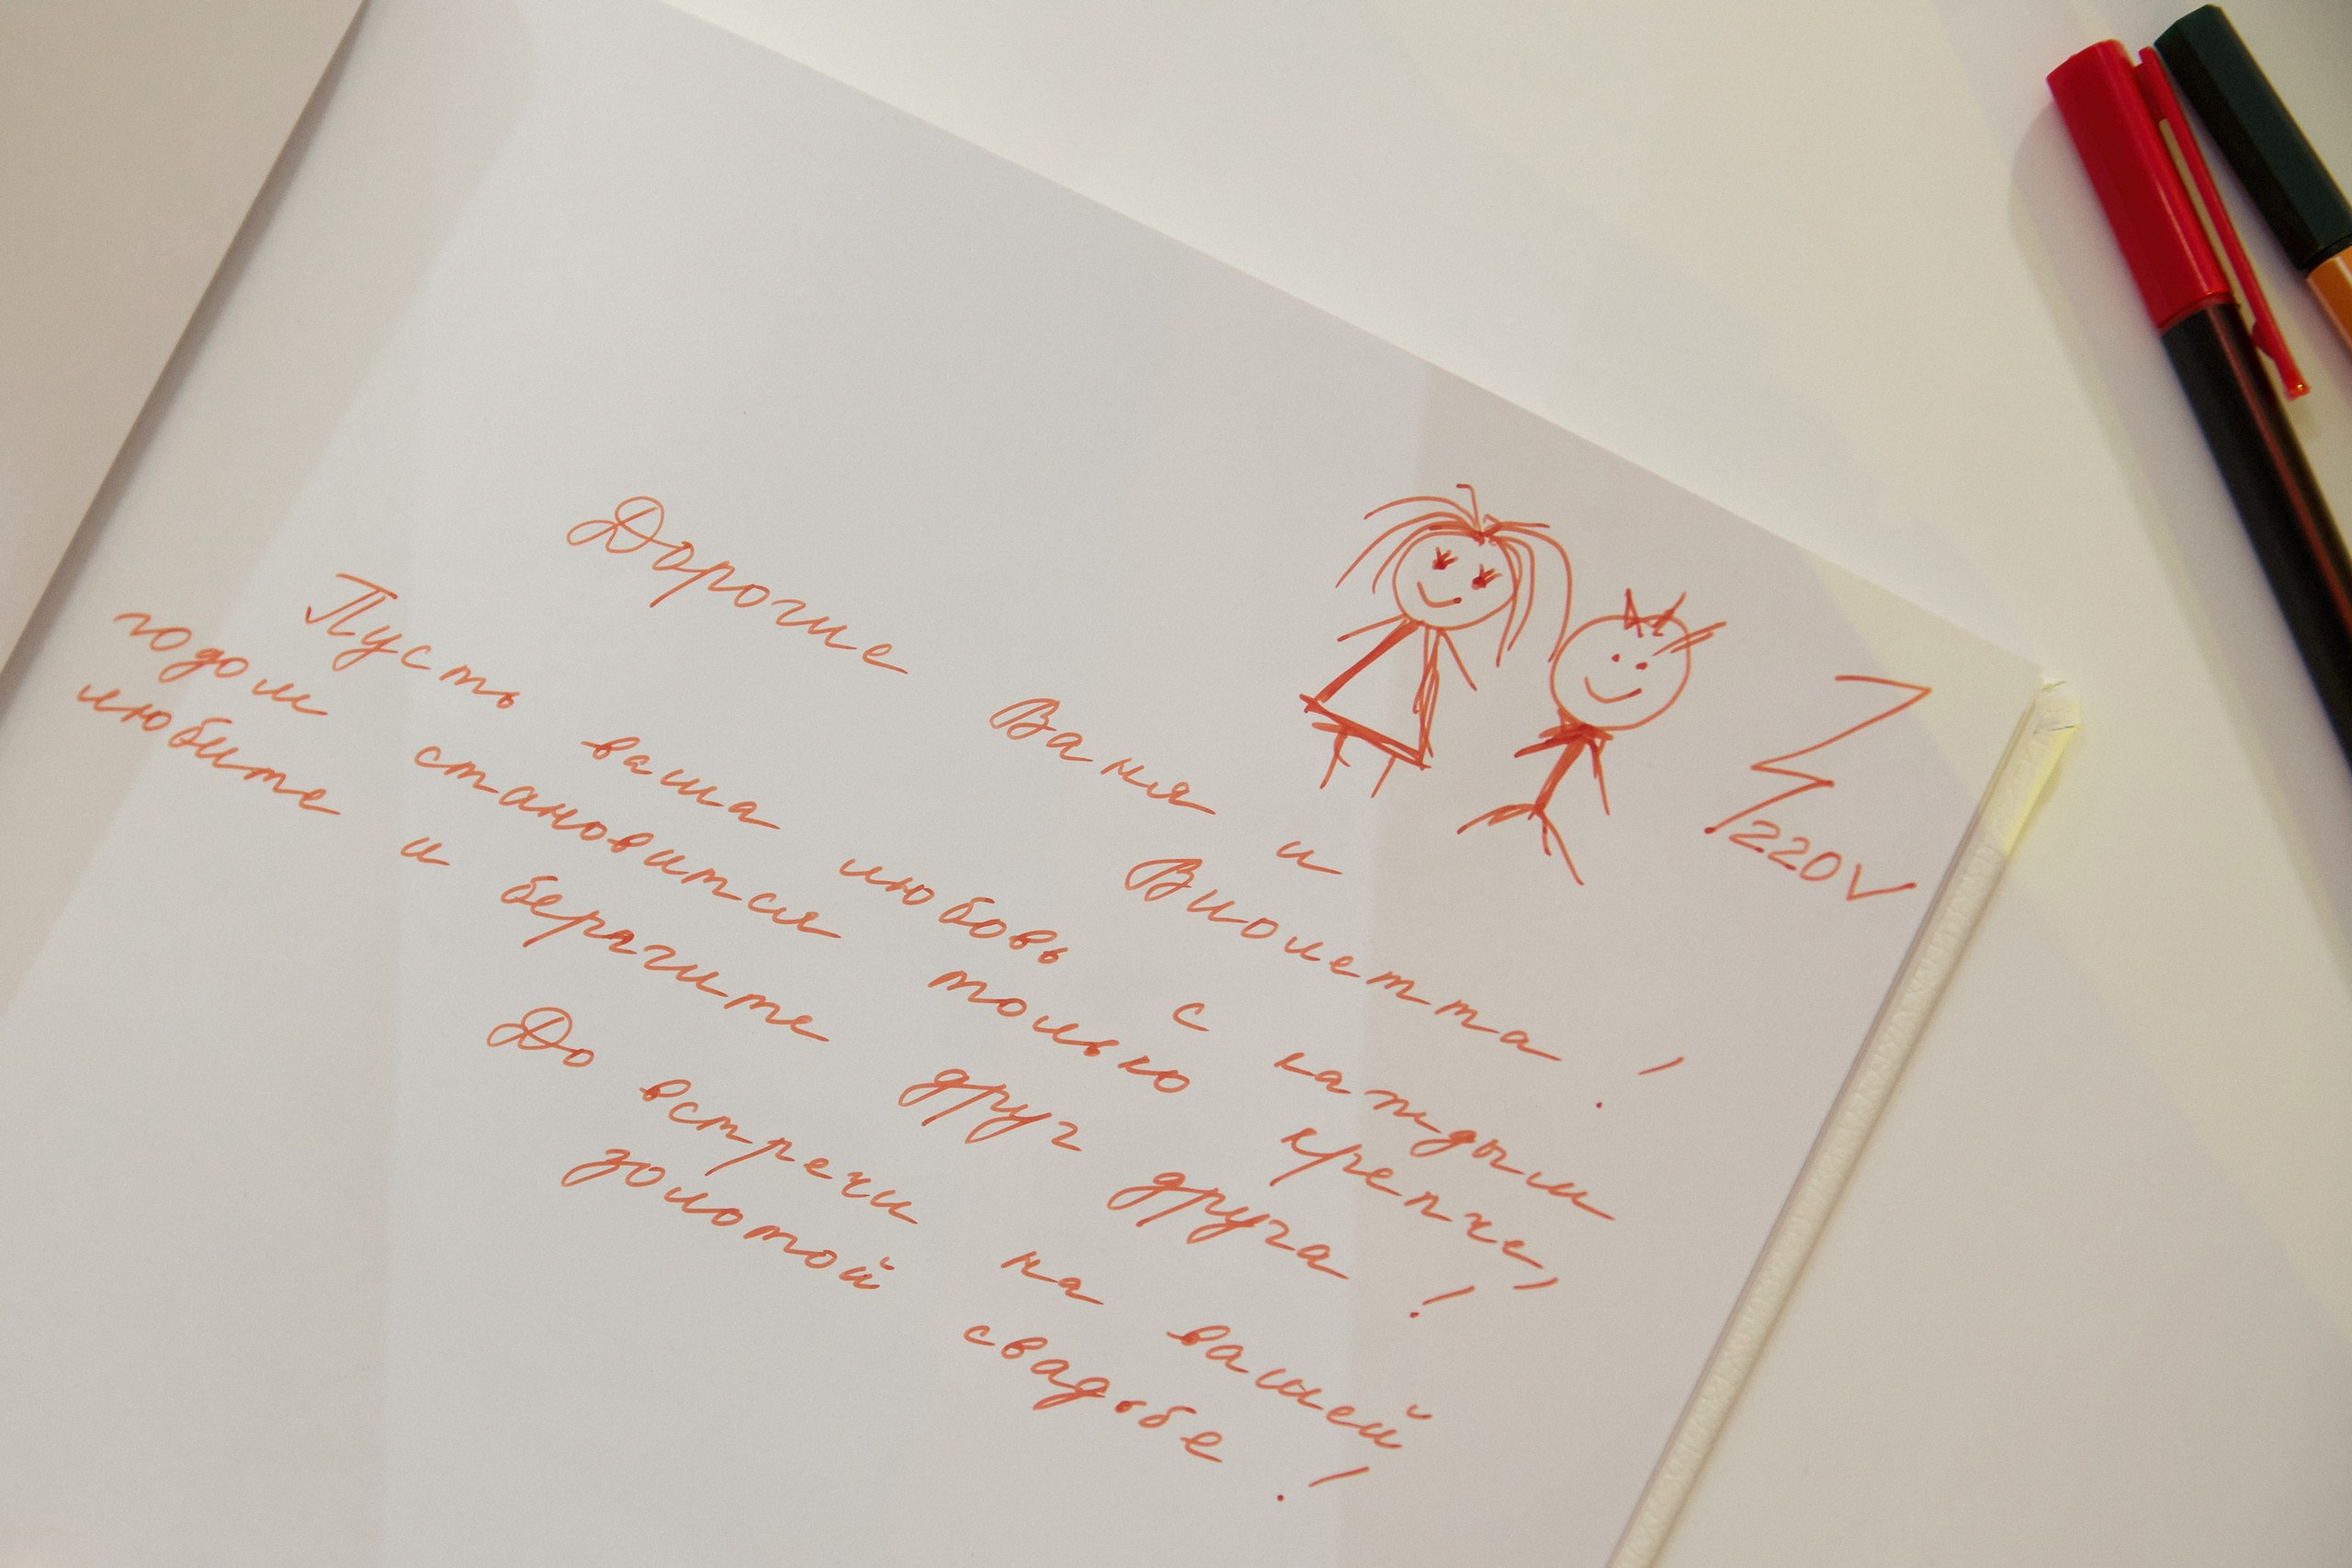 220V
Дорогие Ваня и Виолетта!
Пусть ваша любовь с каждым
годом становится только крепче,
любите и берегите друг друга!
До встречи на вашей
золотой свадьбе!